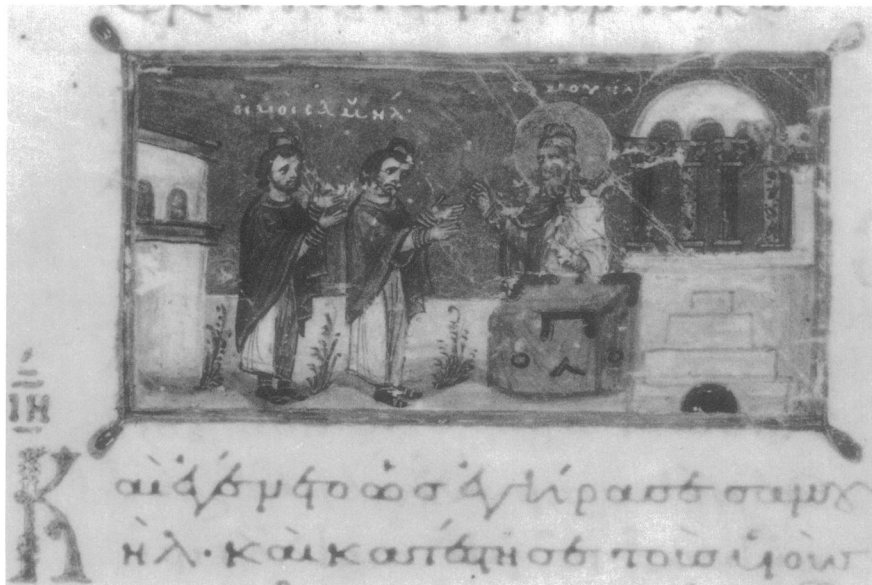 τῶ κω
οι υιοι σαμουήλ·
σαμουηλ
ΙΗ
Καὶ ἐγένετο ὡσ ἐγήρασε σαμου
ὴλ· καὶ κατέστησε τοὺσ υἱοὺσ